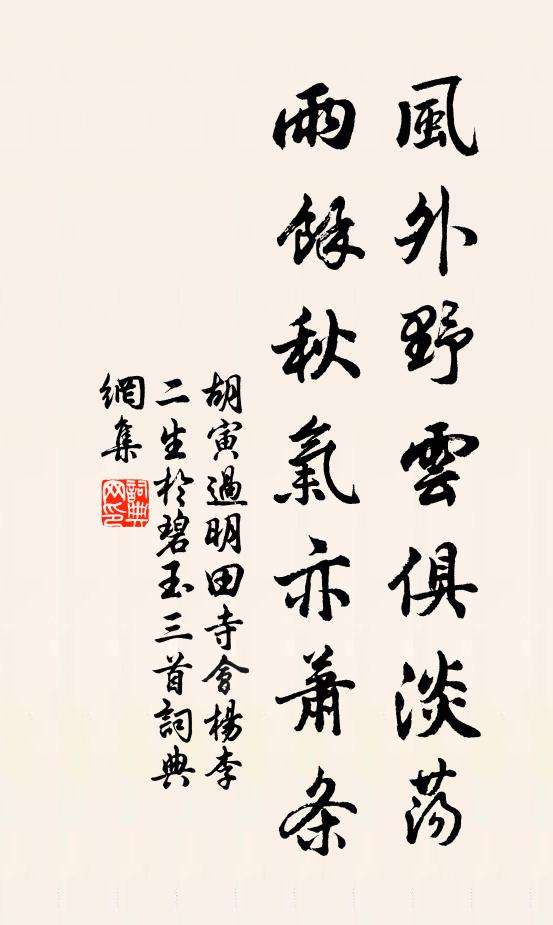 風外野雲俱淡蕩
雨餘秋氣亦蕭条
胡寅過明田寺會楊李
二生於碧玉三首詞典
網集
詞典
网印